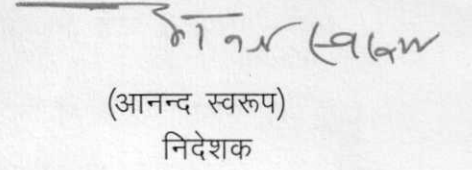 आनन्द स्वरूप
(आनन्द स्वरूप)
निदेशक